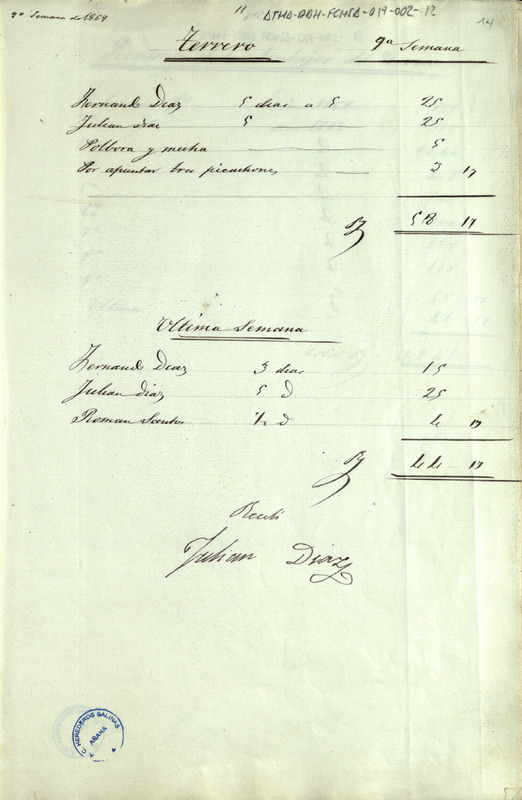 9ª Semana de 1869
11
ATHA-DAH-FCHSA-017-002-12
14
Terrero 9ª Semana
Fernando Diaz 5 dias a 5 25
Julian diaz 5 25
Polbora y mecha 5
Por apuntar tres picachones 3 17
58 17
Ultima Semana
Fernando Diaz 3 dias 15
Julian diaz 5 d 25
Roman Santos ½ d 4 17
44 17
Recibi
Julian Diaz
HEREDEROS SALINAS
AÑANA